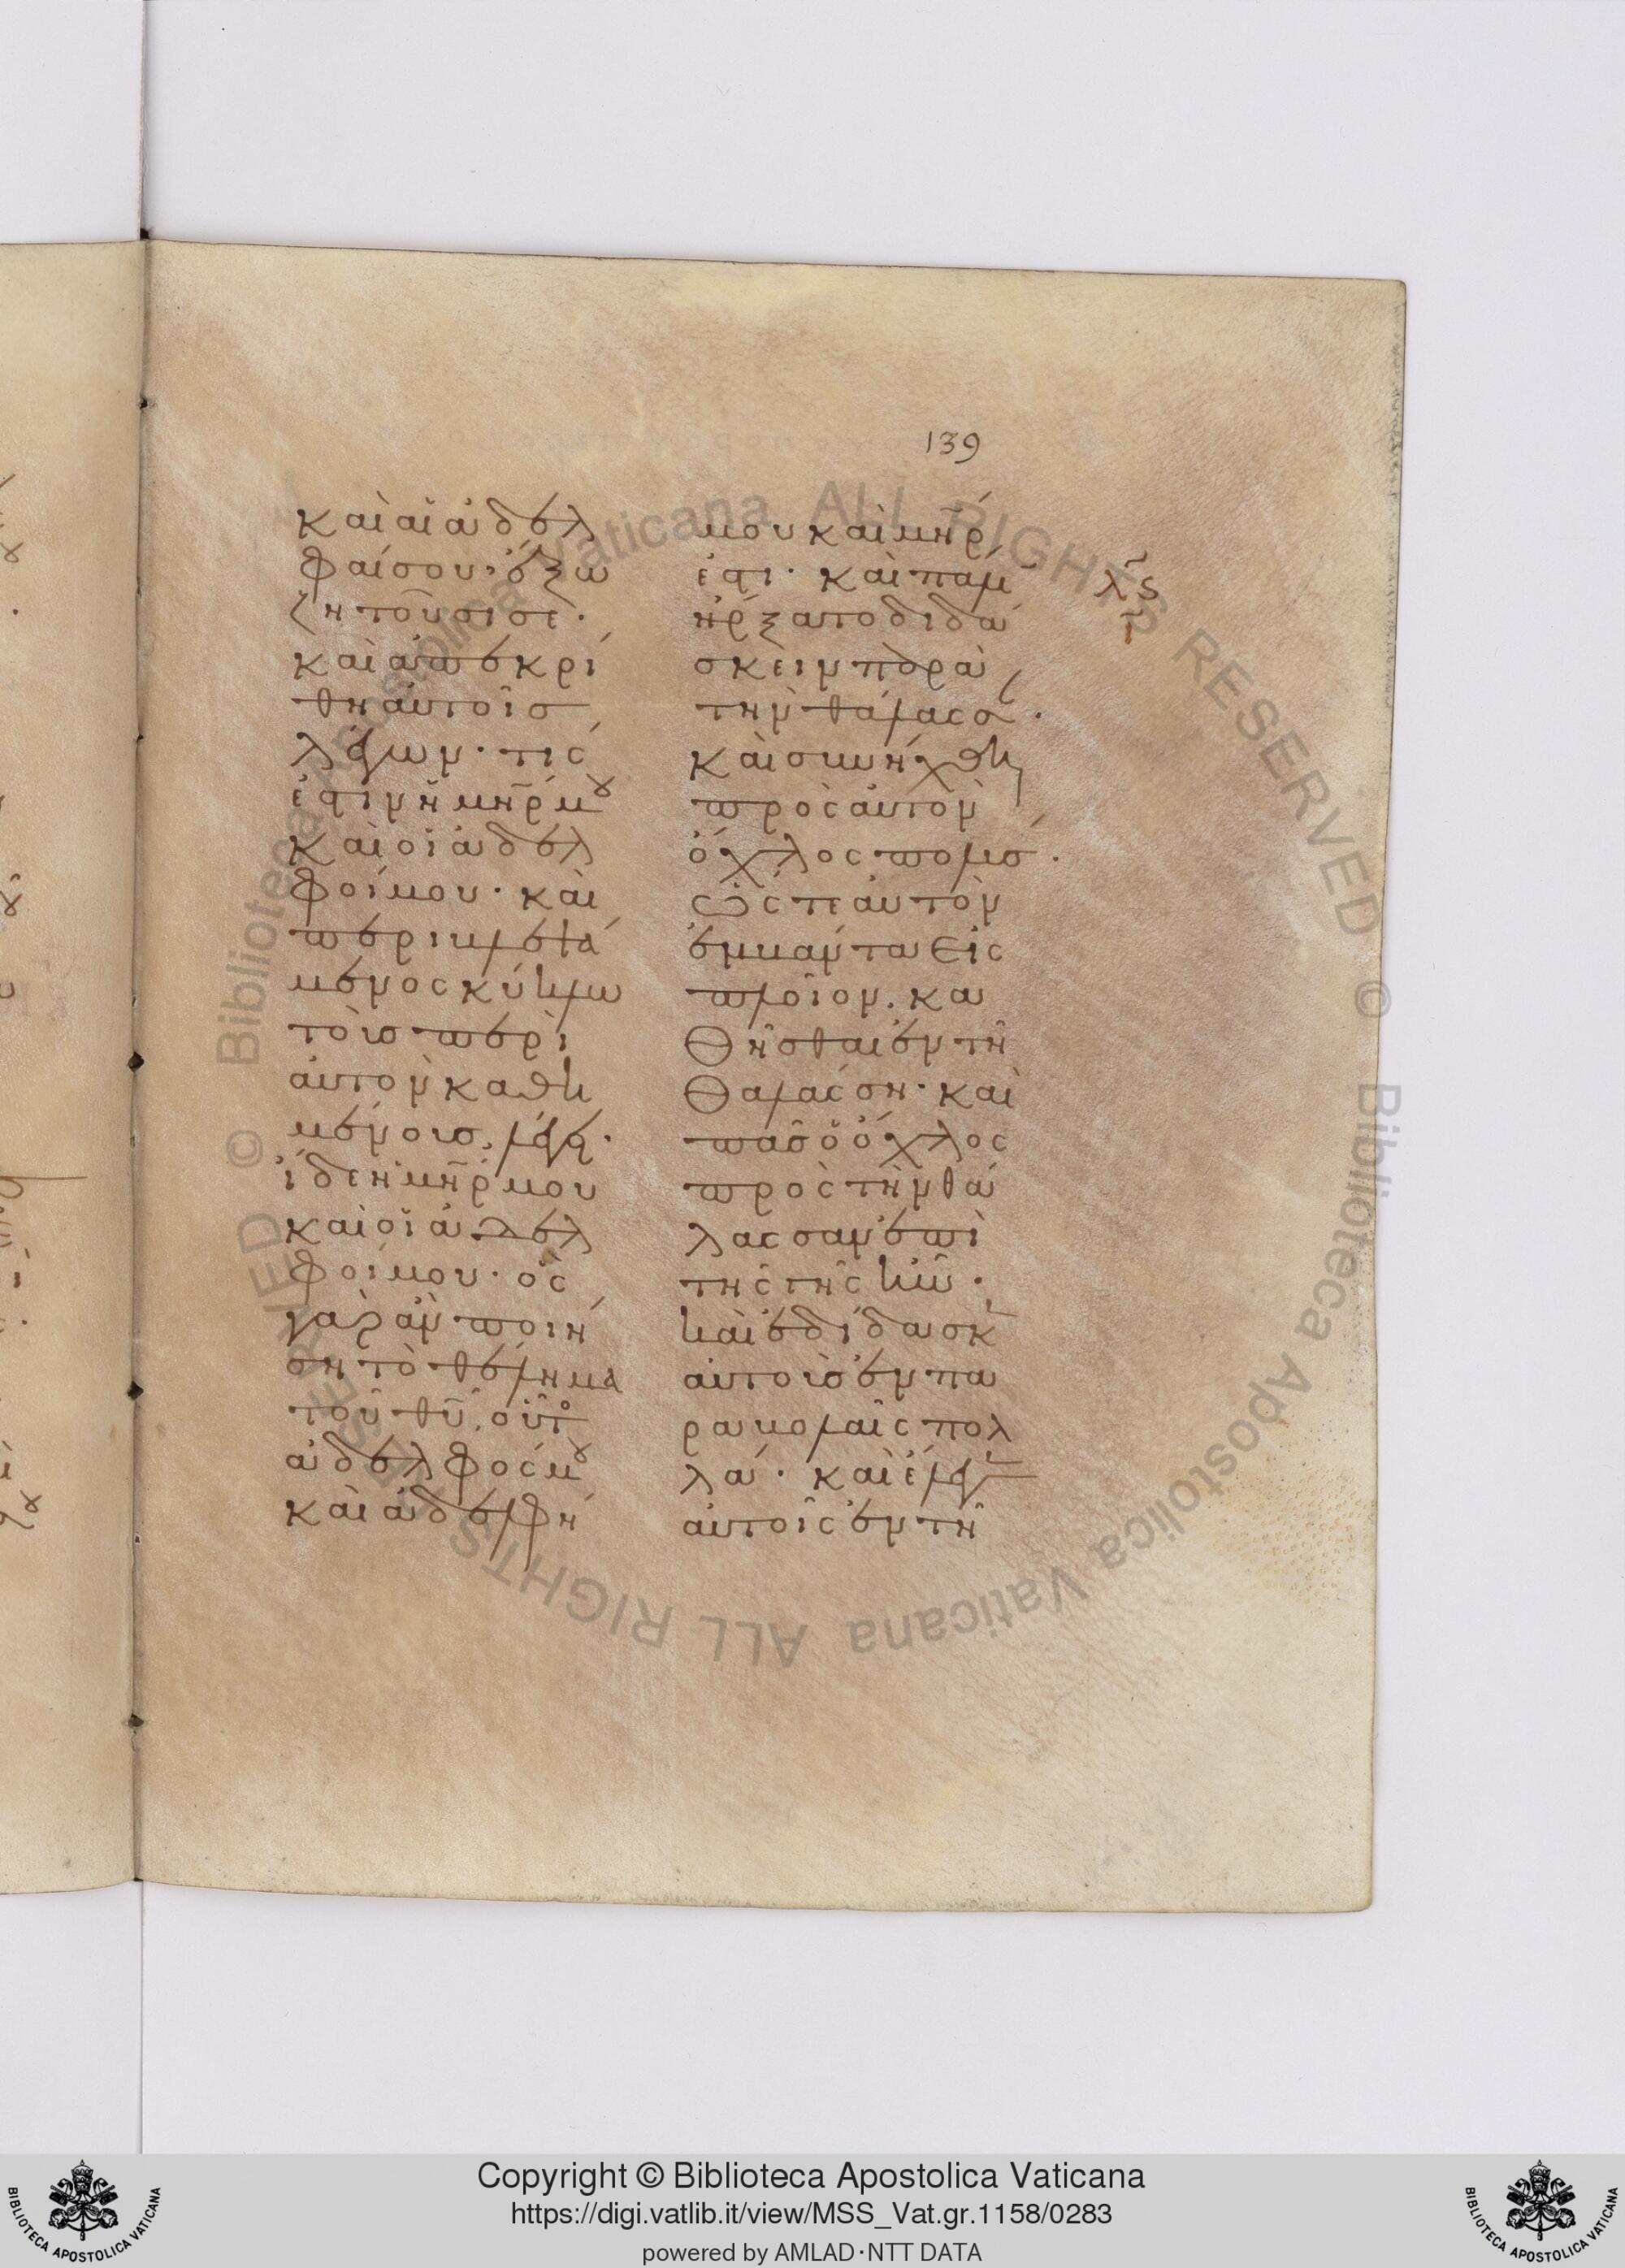 139
καὶ αἱ ἀδελ
φαί σου· ἔξω
ζητοῦσι σε·
καὶ ἀπεκρί
θη αὐτοῖσ
λέγων· τίς
ἐστιν ἡ μη̅ρ μου
καὶ οἱ ἀδελ
φοί μου· καὶ
περιβλεψά
μενος κύκλω
τοὺσ περὶ
αὐτὸν καθη
μένουσ, λέγει·
ἴδε ἡ μη̅ρ μου
καὶ οἱ ἀδελ
φοί μου· ὃς
γὰρ ἂν ποιή
ση τὸ θέλημα
τοῦ θυ̅, οὗτος
ἀδελφός μου
καὶ ἀδελφή
μου καὶ μη̅ρ
ἐστι· καὶ πάλιν
ἤρξατο διδά
σκειν παρὰ
τὴν θάλασσαν·
καὶ συνήχθη
πρὸς αὐτὸν
ὄχλος πολύσ·
ὥστε αὐτὸν
ἐμβάντα εἰς
πλοῖον, κα
θῆσθαι ἐν τῆ
θαλάσση· καὶ
πᾶσ ὁ ὄχλος
πρὸς τὴν θά
λασσαν ἐπὶ
τῆς γῆς ἦν·
καὶ ἐδίδασκεν
αὐτοὺσ ἐν πα
ραβολαῖς πολ
λά· καὶ ἔλεγεν
αὐτοῖς ἐν τῆ
λ̅ς̅
Copyright © Biblioteca Apostolica Vaticana
https://digi.vatlib.it/view/MSS_Vat.gr.1158/0283
powered by AMLAD·NTT DATA
BIBLIOTECA APOSTOLICA VATICANA
BIBLIOTECA APOSTOLICA VATICANA